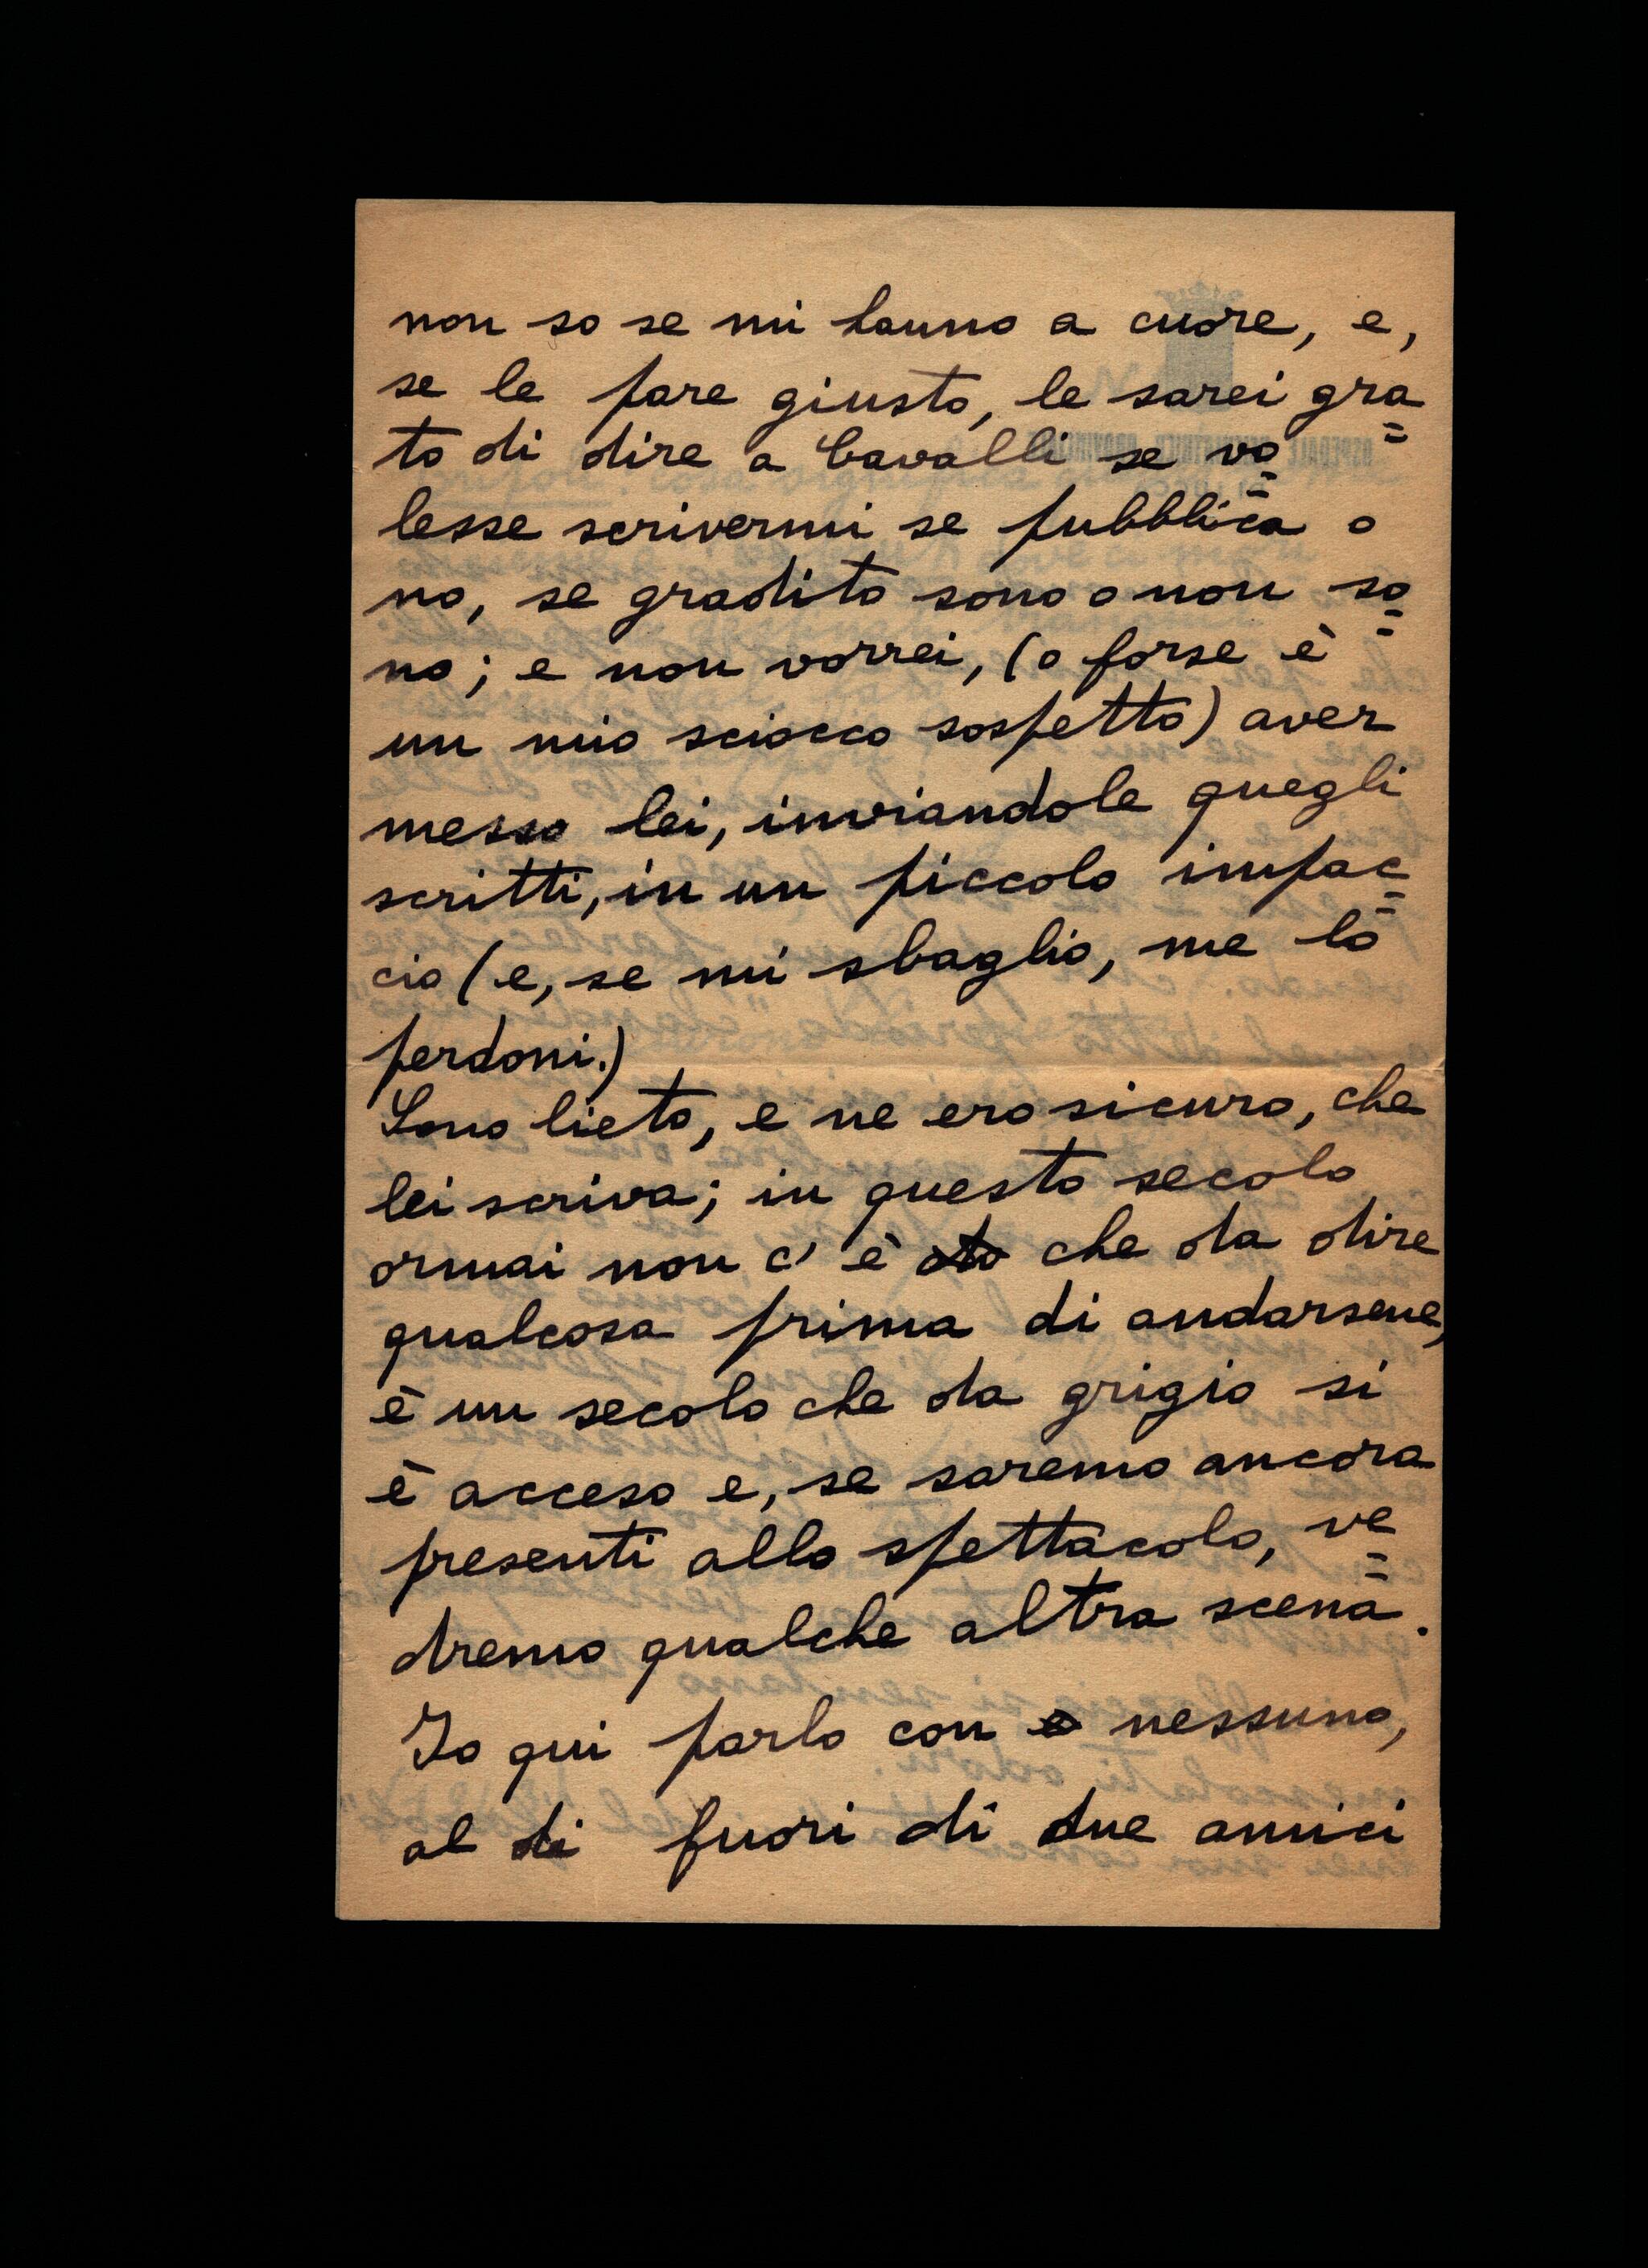 non so se mi hanno a cuore, e,
se le pare giusto, le sarei gra=
to di dire a Cavalli se vo=
lesse scrivermi se pubblica o
no, se gradito sono o non so=
no; e non vorrei, (o forse è
un mio sciocco sospetto) aver
messo lei, inviandole quegli
scritti, in un piccolo impac=
cio (e, se mi sbaglio, me lo
perdoni.)
Sono lieto, e ne ero sicuro, che
lei scriva; in questo secolo
ormai non c'è che da dire
qualcosa prima di andarsene,
è un secolo che da grigio si
è acceso e, se saremo ancora
presenti allo spettacolo, ve=
dremo qualche altra scena.
Io qui parlo con nessuno,
al di fuori di due amici